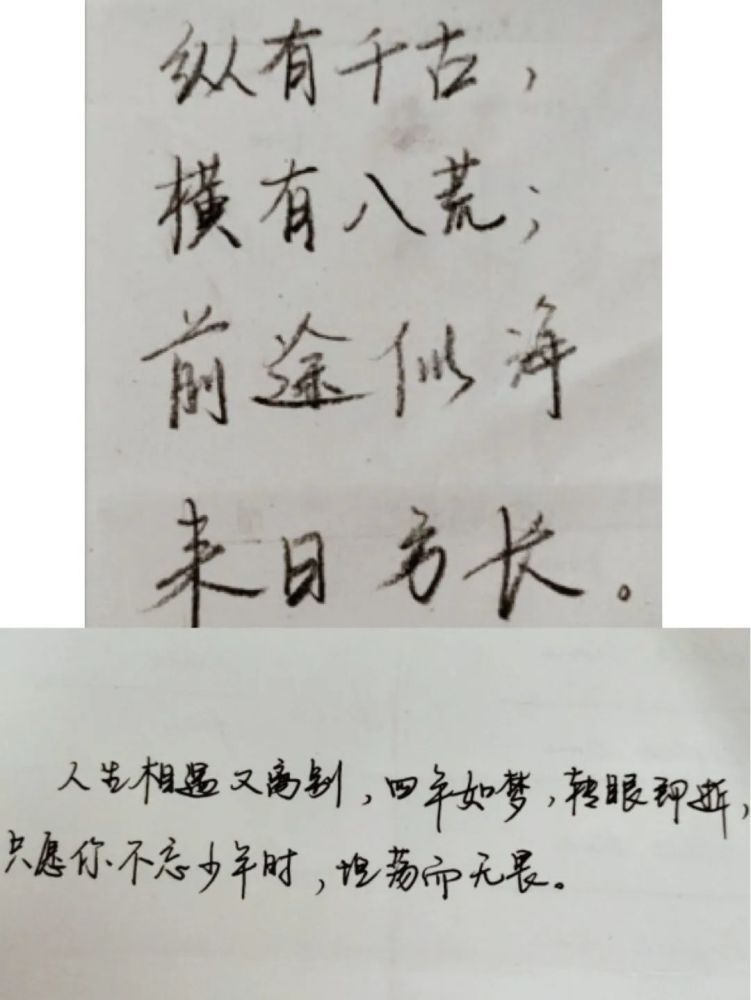 纵有千古，
横有八荒；
前途似海
来日方长。
人生相遇又离别，四年如梦，转眼即逝，
只愿你不忘少年时，坦荡而无畏。